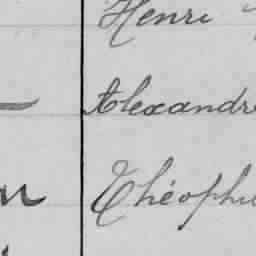 Henri
Alexandre
Théophi